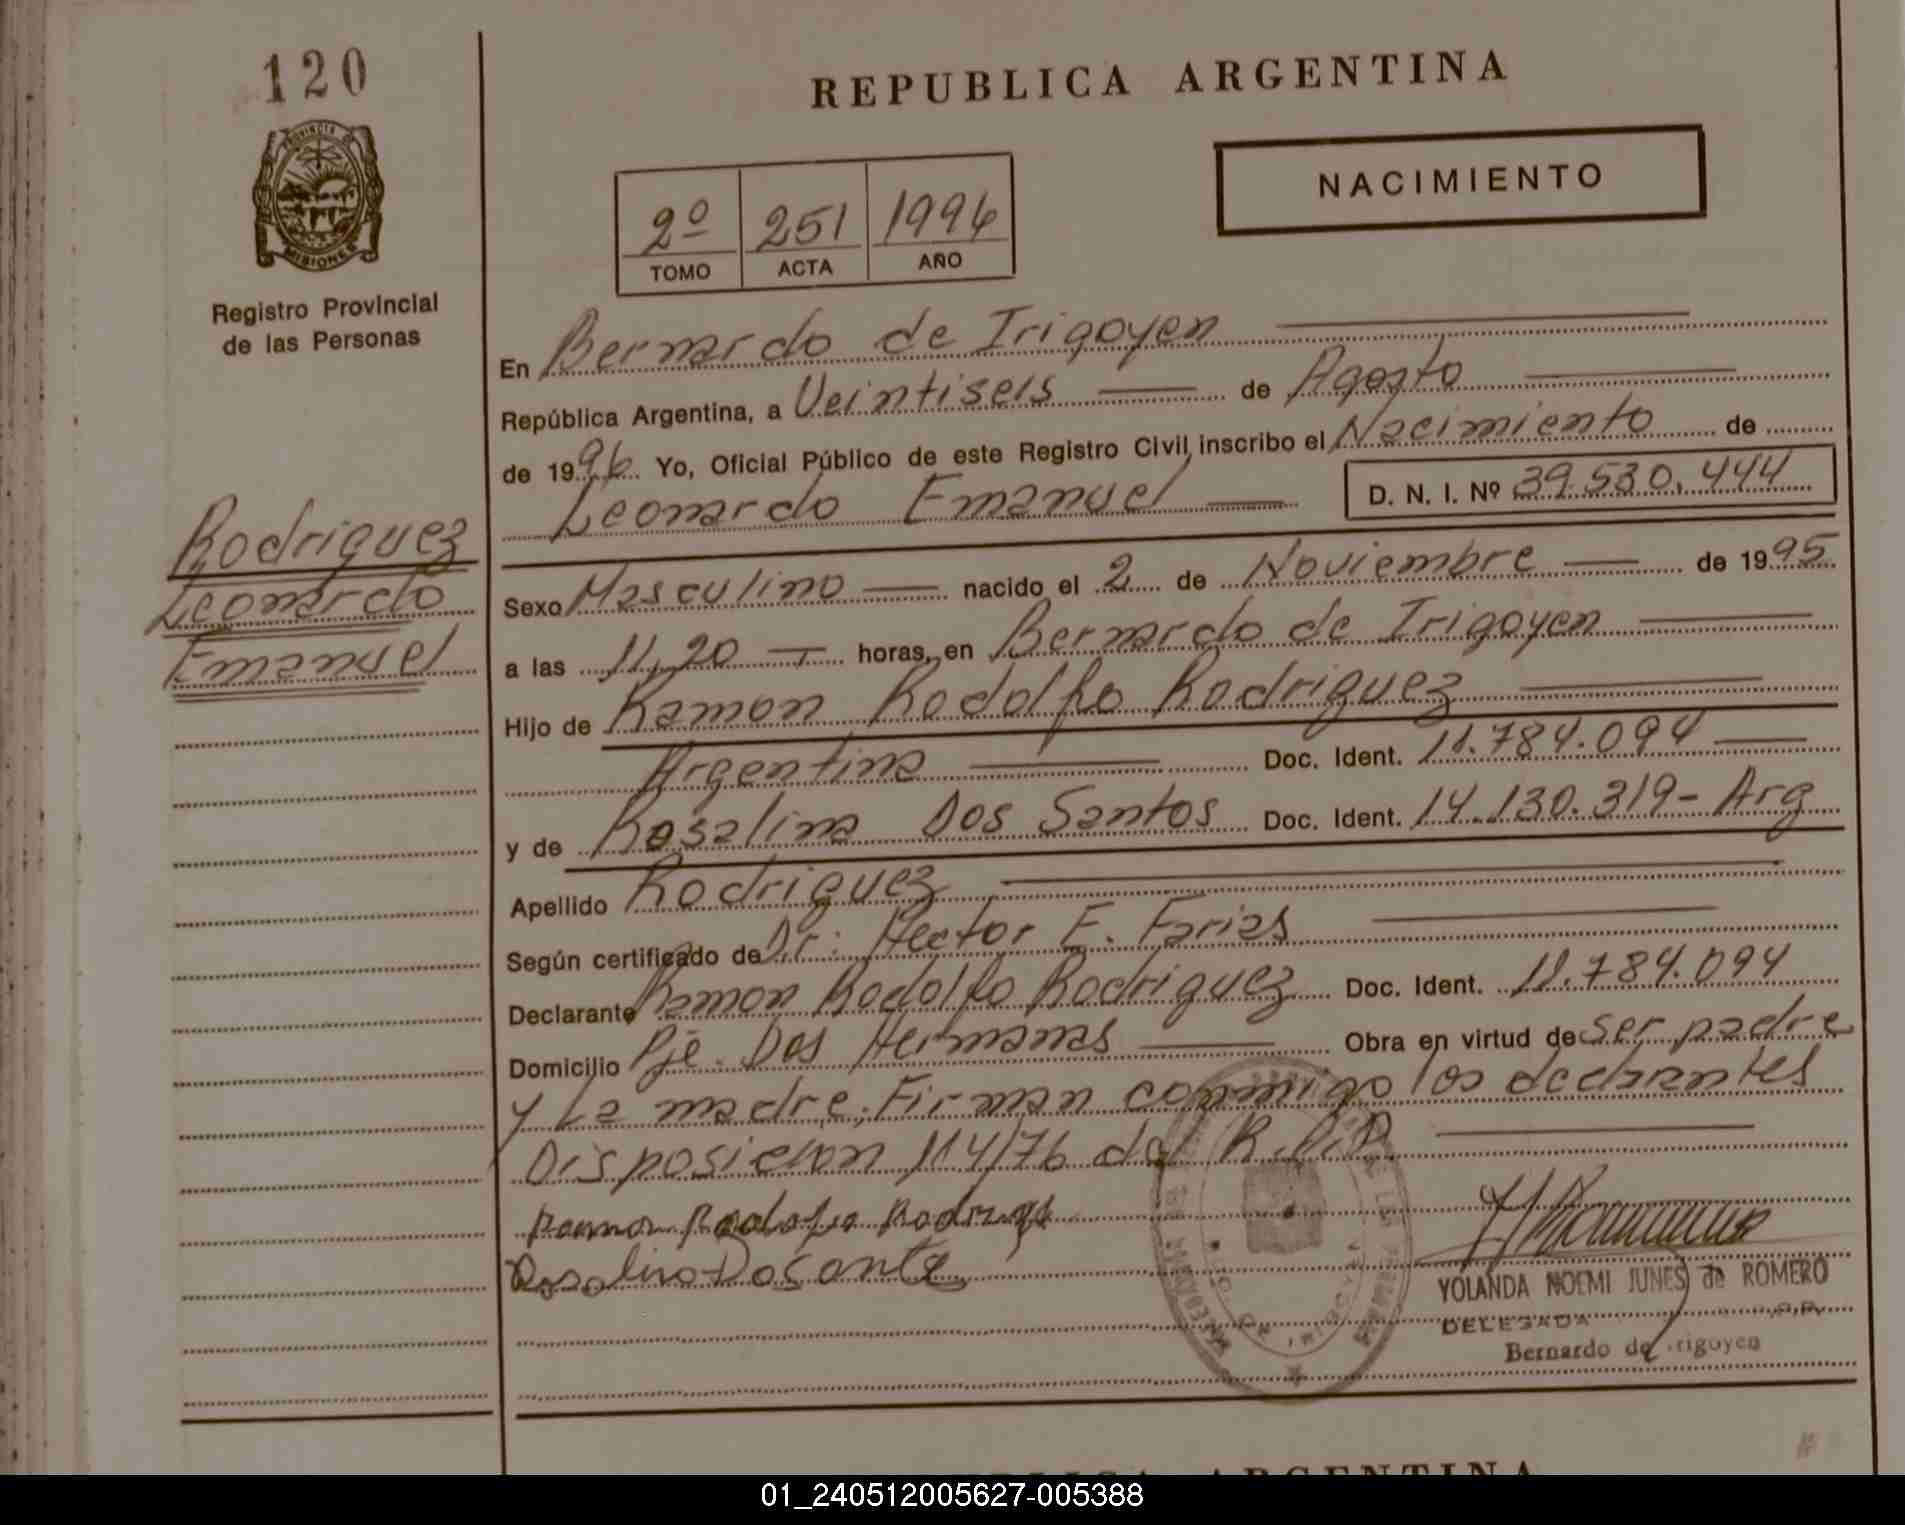 120
REPUBLICA ARGENTINA
NACIMIENTO
2º 251 1996
TOMO ACTA AÑO
PROVINCIA DE
MISIONES
Registro Provincial
de las Personas
En Bernardo de Irigoyen
República Argentina, a Veintiseis de Agosto
de 1996. Yo, Oficial Público de este Registro Civil inscribo el Nacimiento de
Leonardo Emanuel D. N. I. Nº 39.530.444
Rodriguez
Leonardo
Emanuel
Sexo Masculino nacido el 2 de Noviembre de 1995
a las 11,20 horas, en Bernardo de Irigoyen
Hijo de Ramon Rodolfo Rodriguez
Argentina Doc. Ident. 11.784.094
y de Rosalina Dos Santos Doc. Ident. 14.130.319- Arg
Apellido Rodriguez
Según certificado de Dr: Hector E. Farias
Declarante Ramon Rodolfo Rodriguez Doc. Ident. 11.784.094
Domicilio Pje. Dos Hermanas Obra en virtud de ser padre
y La madre. Firman conmigo los declarantes
Disposicion 114/76 del R.P.P.
Ramon Rodolfo Rodrigez
Rosalina Dosante
YOLANDA NOEMI JUNES de ROMERO
DELEGADA
Bernardo de Irigoyen
REPUBLICA ARGENTINA
01_240512005627-005388